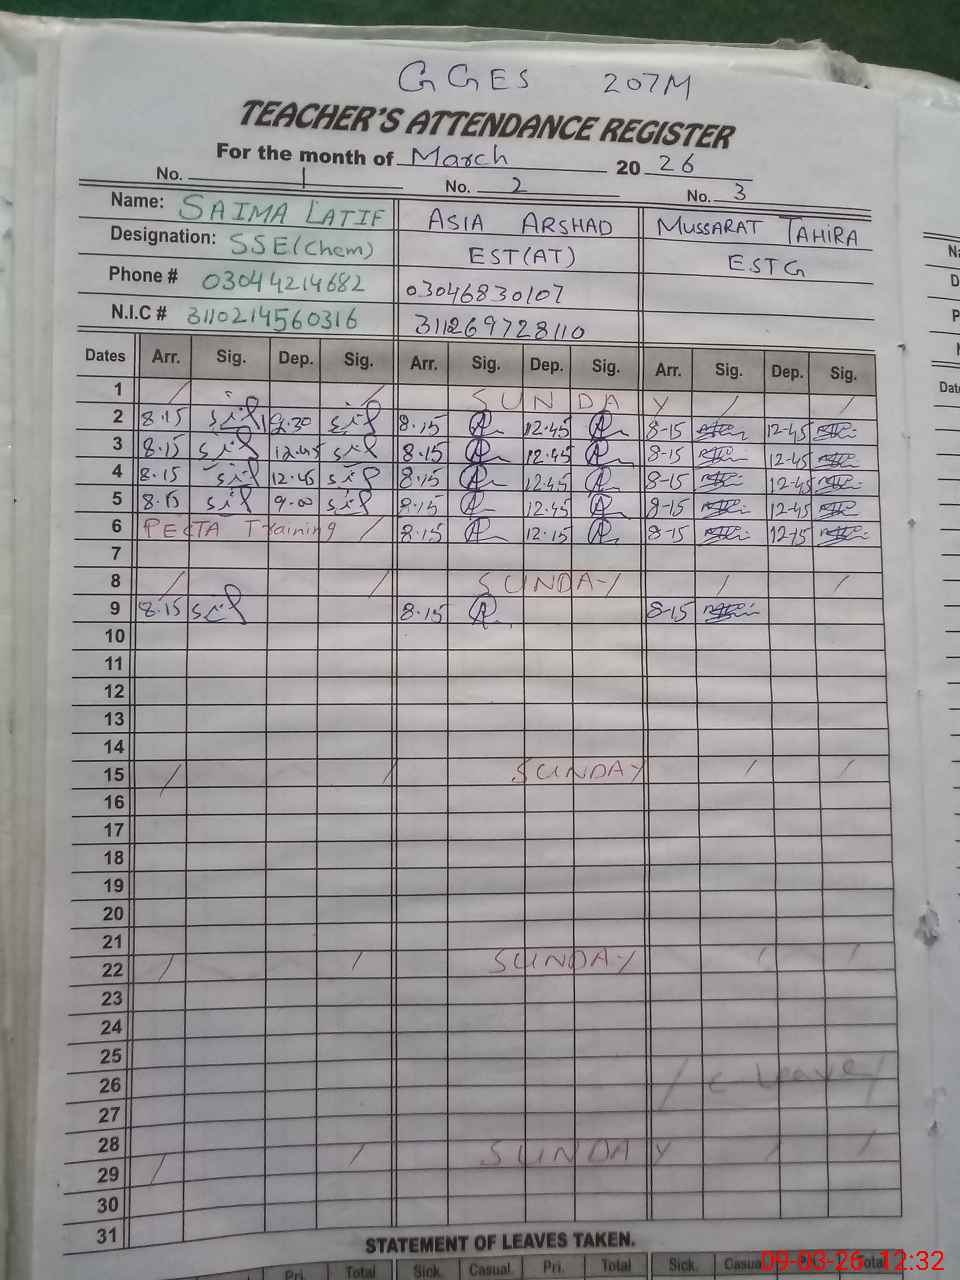 GGES 207M
TEACHER'S ATTENDANCE REGISTER
For the month of March 2026
No. 1 No. 2 No. 3
Name: SAIMA LATIF ASIA ARSHAD MUSSARAT TAHIRA
Designation: SSE(Chem) EST(AT) ESTG
Phone # 03044214682 03046830107
N.I.C # 3110214560316 311269728110
Dates Arr. Sig. Dep. Sig. Arr. Sig. Dep. Sig. Arr. Sig. Dep. Sig.
1 / / SUNDAY / /
2 8.15 9.30 8.15 12.45 8-15 12-45
3 8.15 12.45 8.15 12.45 8-15 12-45
4 8.15 12.45 8.15 12.45 8-15 12-45
5 8.15 9.00 8.15 12.45 8-15 12-45
6 PECTA Training / 8.15 12.15 8-15 12-15
7
8 / / SUNDAY / /
9 8.15 8.15 8-15
10
11
12
13
14
15 / / SUNDAY / /
16
17
18
19
20
21
22 / / SUNDAY / /
23
24
25
26 / C Leave /
27
28
29 / / SUNDAY / /
30
31
STATEMENT OF LEAVES TAKEN.
Pri. Total Sick. Casual. Pri. Total Sick. Casual Total
09-03-26 12:32